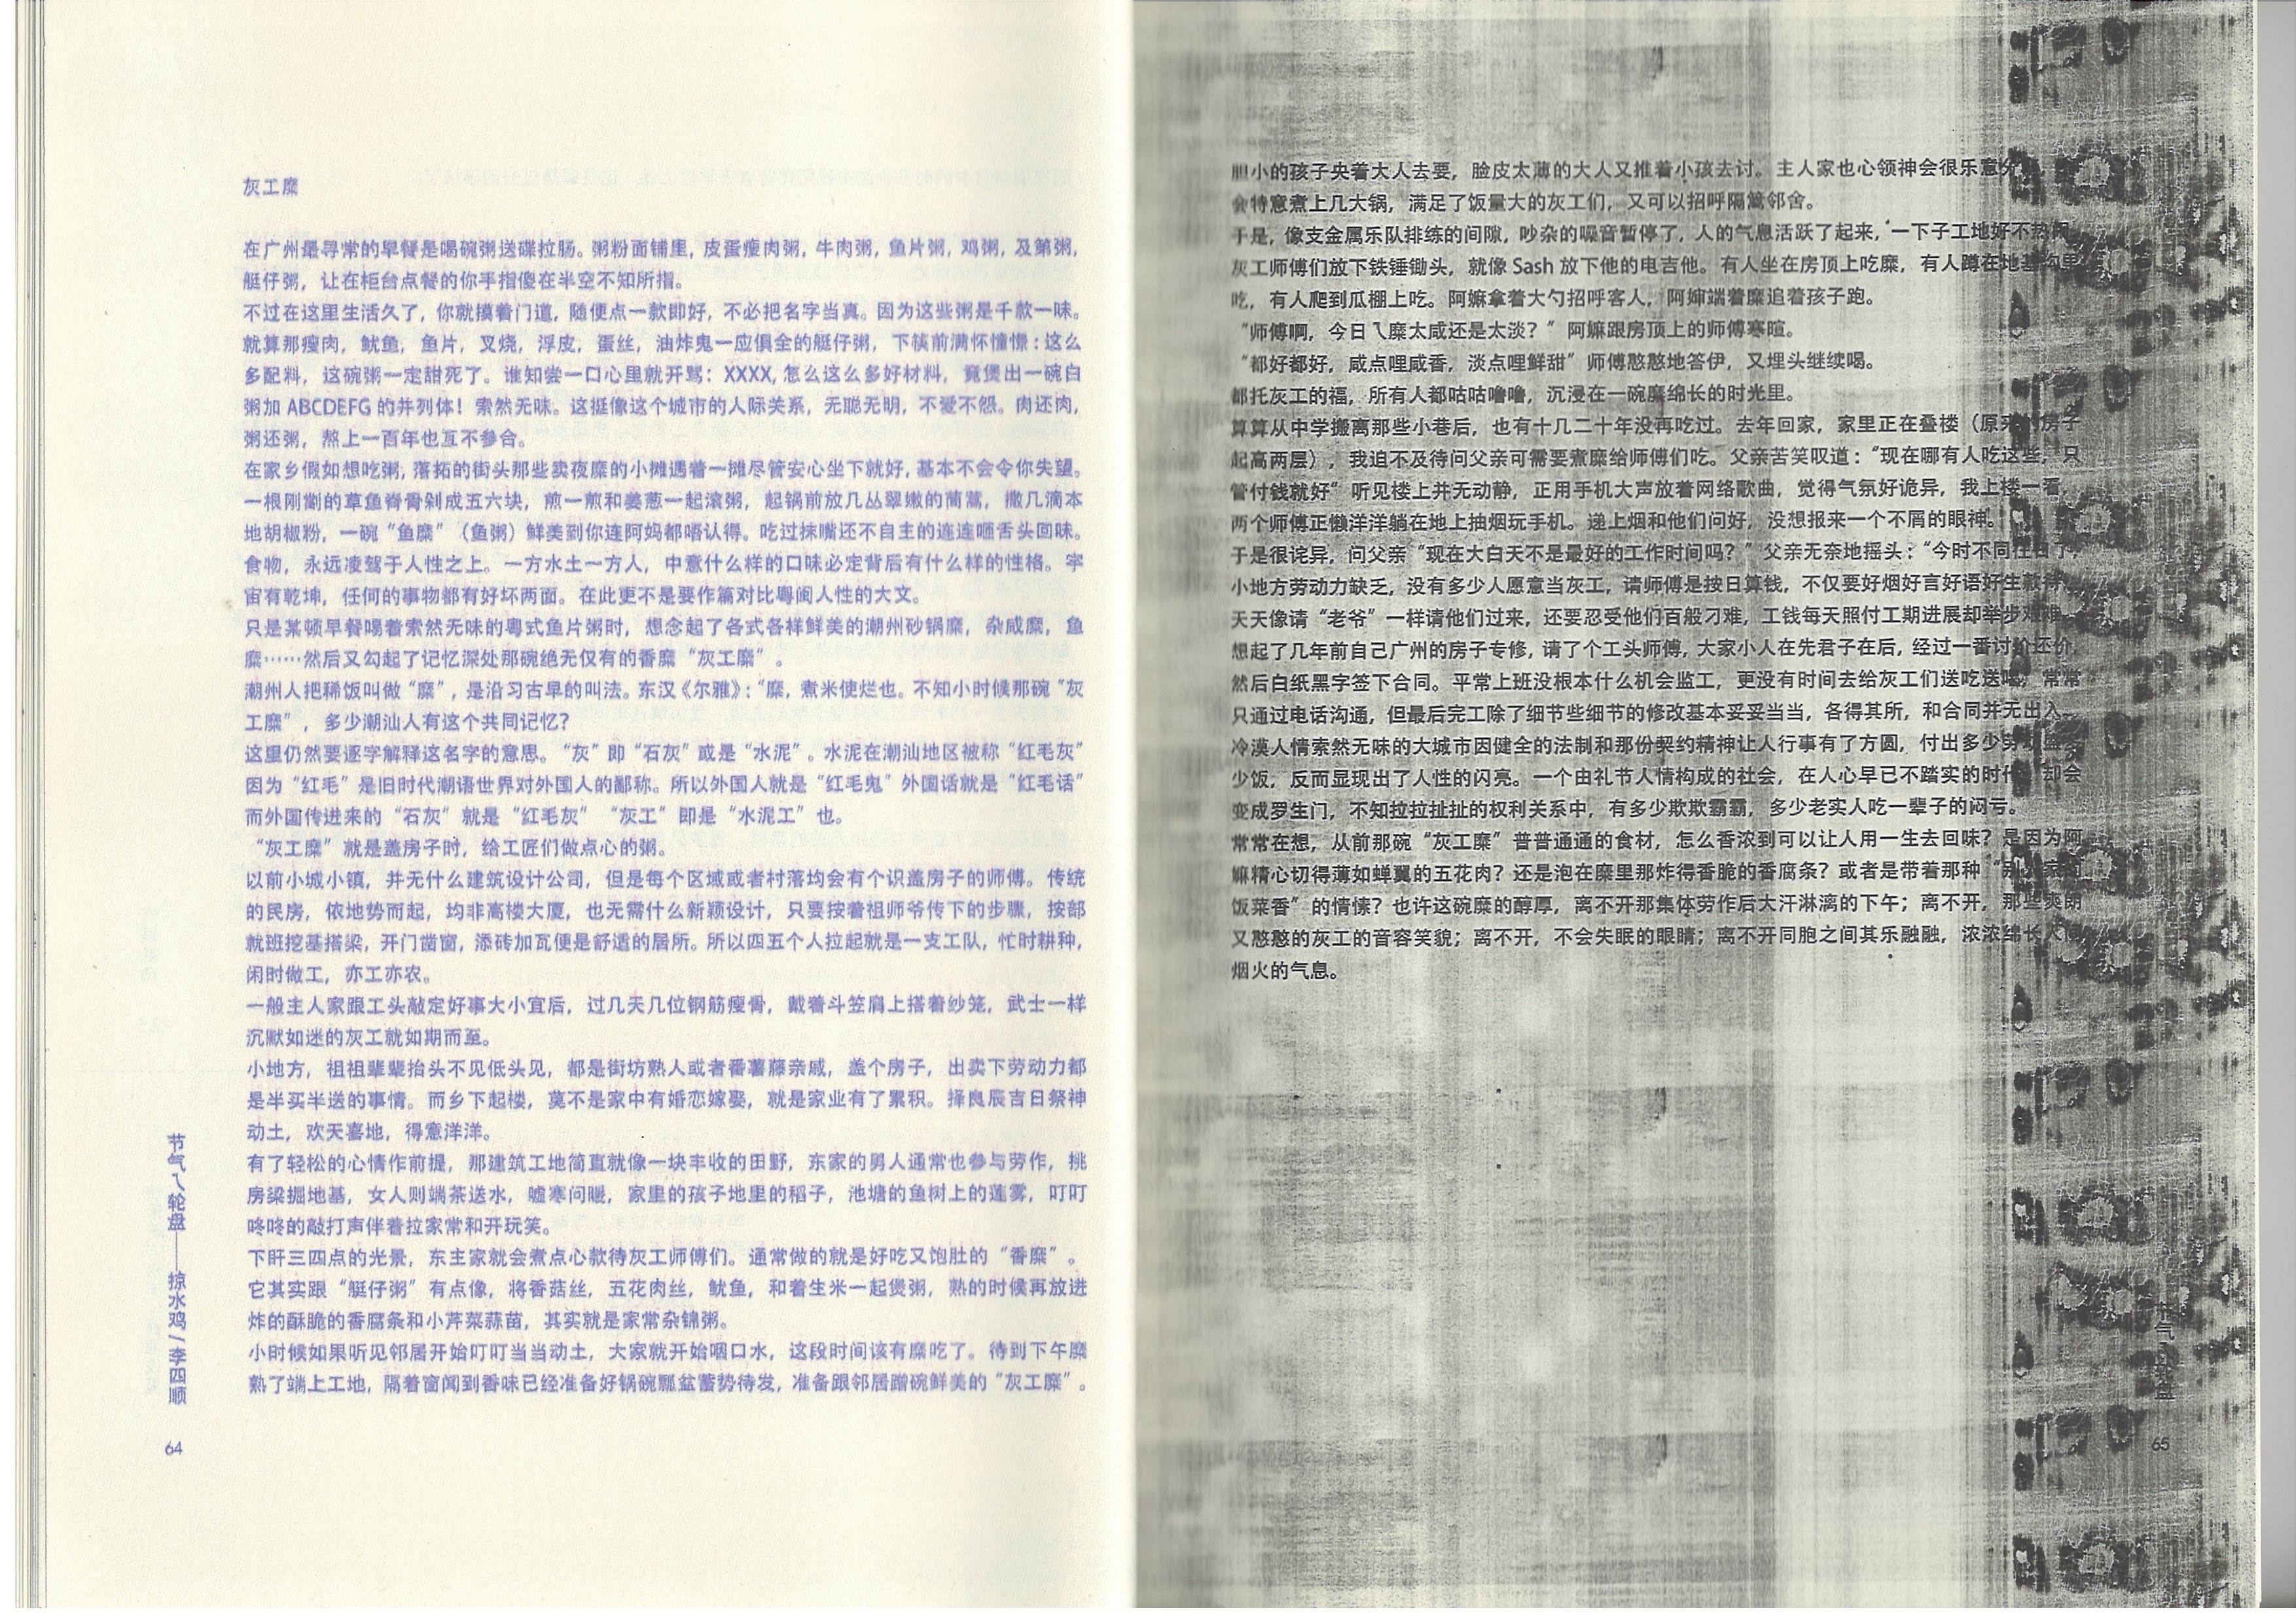 灰工糜
在广州最寻常的早餐是喝碗粥送碟拉肠。粥粉面铺里，皮蛋瘦肉粥，牛肉粥，鱼片粥，鸡粥，及第粥，
艇仔粥，让在柜台点餐的你手指傻在半空不知所指。
不过在这里生活久了，你就摸着门道，随便点一款即好，不必把名字当真。因为这些粥是千款一味。
就算那瘦肉，鱿鱼，鱼片，叉烧，浮皮，蛋丝，油炸鬼一应俱全的艇仔粥，下筷前满怀憧憬：这么
多配料，这碗粥一定甜死了。谁知尝一口心里就开骂：XXXX,怎么这么多好材料，竟煲出一碗白
粥加 ABCDEFG 的并列体！索然无味。这挺像这个城市的人际关系，无聪无明，不爱不怨。肉还肉，
粥还粥，熬上一百年也互不参合。
在家乡假如想吃粥，落拓的街头那些卖夜糜的小摊遇着一摊尽管安心坐下就好，基本不会令你失望。
一根刚劏的草鱼脊骨剁成五六块，煎一煎和姜葱一起滚粥，起锅前放几丛翠嫩的茼蒿，撒几滴本
地胡椒粉，一碗“鱼糜”（鱼粥）鲜美到你连阿妈都唔认得。吃过抹嘴还不自主的连连咂舌头回味。
食物，永远凌驾于人性之上。一方水土一方人，中意什么样的口味必定背后有什么样的性格。宇
宙有乾坤，任何的事物都有好坏两面。在此更不是要作篇对比粤闽人性的大文。
只是某顿早餐喝着索然无味的粤式鱼片粥时，想念起了各式各样鲜美的潮州砂锅糜，杂咸糜，鱼
糜……然后又勾起了记忆深处那碗绝无仅有的香糜“灰工糜”。
潮州人把稀饭叫做“糜”，是沿习古早的叫法。东汉《尔雅》：“糜，煮米使烂也。不知小时候那碗“灰
工糜”，多少潮汕人有这个共同记忆？
这里仍然要逐字解释这名字的意思。“灰”即“石灰”或是“水泥”。水泥在潮汕地区被称“红毛灰”
因为“红毛”是旧时代潮语世界对外国人的鄙称。所以外国人就是“红毛鬼”外国话就是“红毛话”
而外国传进来的“石灰”就是“红毛灰” “灰工”即是“水泥工”也。
“灰工糜”就是盖房子时，给工匠们做点心的粥。
以前小城小镇，并无什么建筑设计公司，但是每个区域或者村落均会有个识盖房子的师傅。传统
的民房，依地势而起，均非高楼大厦，也无需什么新颖设计，只要按着祖师爷传下的步骤，按部
就班挖基搭梁，开门凿窗，添砖加瓦便是舒适的居所。所以四五个人拉起就是一支工队，忙时耕种，
闲时做工，亦工亦农。
一般主人家跟工头敲定好事大小宜后，过几天几位钢筋瘦骨，戴着斗笠肩上搭着纱笼，武士一样
沉默如迷的灰工就如期而至。
小地方，祖祖辈辈抬头不见低头见，都是街坊熟人或者番薯藤亲戚，盖个房子，出卖下劳动力都
是半买半送的事情。而乡下起楼，莫不是家中有婚恋嫁娶，就是家业有了累积。择良辰吉日祭神
动土，欢天喜地，得意洋洋。
有了轻松的心情作前提，那建筑工地简直就像一块丰收的田野，东家的男人通常也参与劳作，挑
房梁掘地基，女人则端茶送水，嘘寒问暖，家里的孩子地里的稻子，池塘的鱼树上的莲雾，叮叮
咚咚的敲打声伴着拉家常和开玩笑。
下旰三四点的光景，东主家就会煮点心款待灰工师傅们。通常做的就是好吃又饱肚的“香糜”。
它其实跟“艇仔粥”有点像，将香菇丝，五花肉丝，鱿鱼，和着生米一起煲粥，熟的时候再放进
炸的酥脆的香腐条和小芹菜蒜苗，其实就是家常杂锦粥。
小时候如果听见邻居开始叮叮当当动土，大家就开始咽口水，这段时间该有糜吃了。待到下午糜
熟了端上工地，隔着窗闻到香味已经准备好锅碗瓢盆蓄势待发，准备跟邻居蹭碗鲜美的“灰工糜”。
节气乀轮盘——掠水鸡/李四顺
64
胆小的孩子央着大人去要，脸皮太薄的大人又推着小孩去讨。主人家也心领神会很乐意分
会特意煮上几大锅，满足了饭量大的灰工们，又可以招呼隔篱邻舍。
于是，像支金属乐队排练的间隙，吵杂的噪音暂停了，人的气息活跃了起来，一下子工地好不热闹
灰工师傅们放下铁锤锄头，就像 Sash 放下他的电吉他。有人坐在房顶上吃糜，有人蹲在地基沟里
吃，有人爬到瓜棚上吃。阿嫲拿着大勺招呼客人，阿婶端着糜追着孩子跑。
“师傅啊，今日乀糜太咸还是太淡？”阿嫲跟房顶上的师傅寒暄。
“都好都好，咸点哩咸香，淡点哩鲜甜”师傅憨憨地答伊，又埋头继续喝。
都托灰工的福，所有人都咕咕噜噜，沉浸在一碗糜绵长的时光里。
算算从中学搬离那些小巷后，也有十几二十年没再吃过。去年回家，家里正在叠楼（原来的房子
起高两层），我迫不及待问父亲可需要煮糜给师傅们吃。父亲苦笑叹道：“现在哪有人吃这些，只
管付钱就好”听见楼上并无动静，正用手机大声放着网络歌曲，觉得气氛好诡异，我上楼一看，
两个师傅正懒洋洋躺在地上抽烟玩手机。递上烟和他们问好，没想报来一个不屑的眼神。
于是很诧异，问父亲“现在大白天不是最好的工作时间吗？”父亲无奈地摇头：“今时不同往日了，
小地方劳动力缺乏，没有多少人愿意当灰工，请师傅是按日算钱，不仅要好烟好言好语好生款待，
天天像请“老爷”一样请他们过来，还要忍受他们百般刁难，工钱每天照付工期进展却举步艰难
想起了几年前自己广州的房子专修，请了个工头师傅，大家小人在先君子在后，经过一番讨价还价，
然后白纸黑字签下合同。平常上班没根本什么机会监工，更没有时间去给灰工们送吃送喝，常常
只通过电话沟通，但最后完工除了细节些细节的修改基本妥妥当当，各得其所，和合同并无出入。
冷漠人情索然无味的大城市因健全的法制和那份契约精神让人行事有了方圆，付出多少劳
少饭，反而显现出了人性的闪亮。一个由礼节人情构成的社会，在人心早已不踏实的时代，却会
变成罗生门，不知拉拉扯扯的权利关系中，有多少欺欺霸霸，多少老实人吃一辈子的闷亏。
常常在想，从前那碗“灰工糜”普普通通的食材，怎么香浓到可以让人用一生去回味？是因为阿
嫲精心切得薄如蝉翼的五花肉？还是泡在糜里那炸得香脆的香腐条？或者是带着那种“别人家的
饭菜香”的情愫？也许这碗糜的醇厚，离不开那集体劳作后大汗淋漓的下午；离不开，那些爽朗
又憨憨的灰工的音容笑貌；离不开，不会失眠的眼睛；离不开同胞之间其乐融融，浓浓绵长人间
烟火的气息。
节气乀轮盘
65